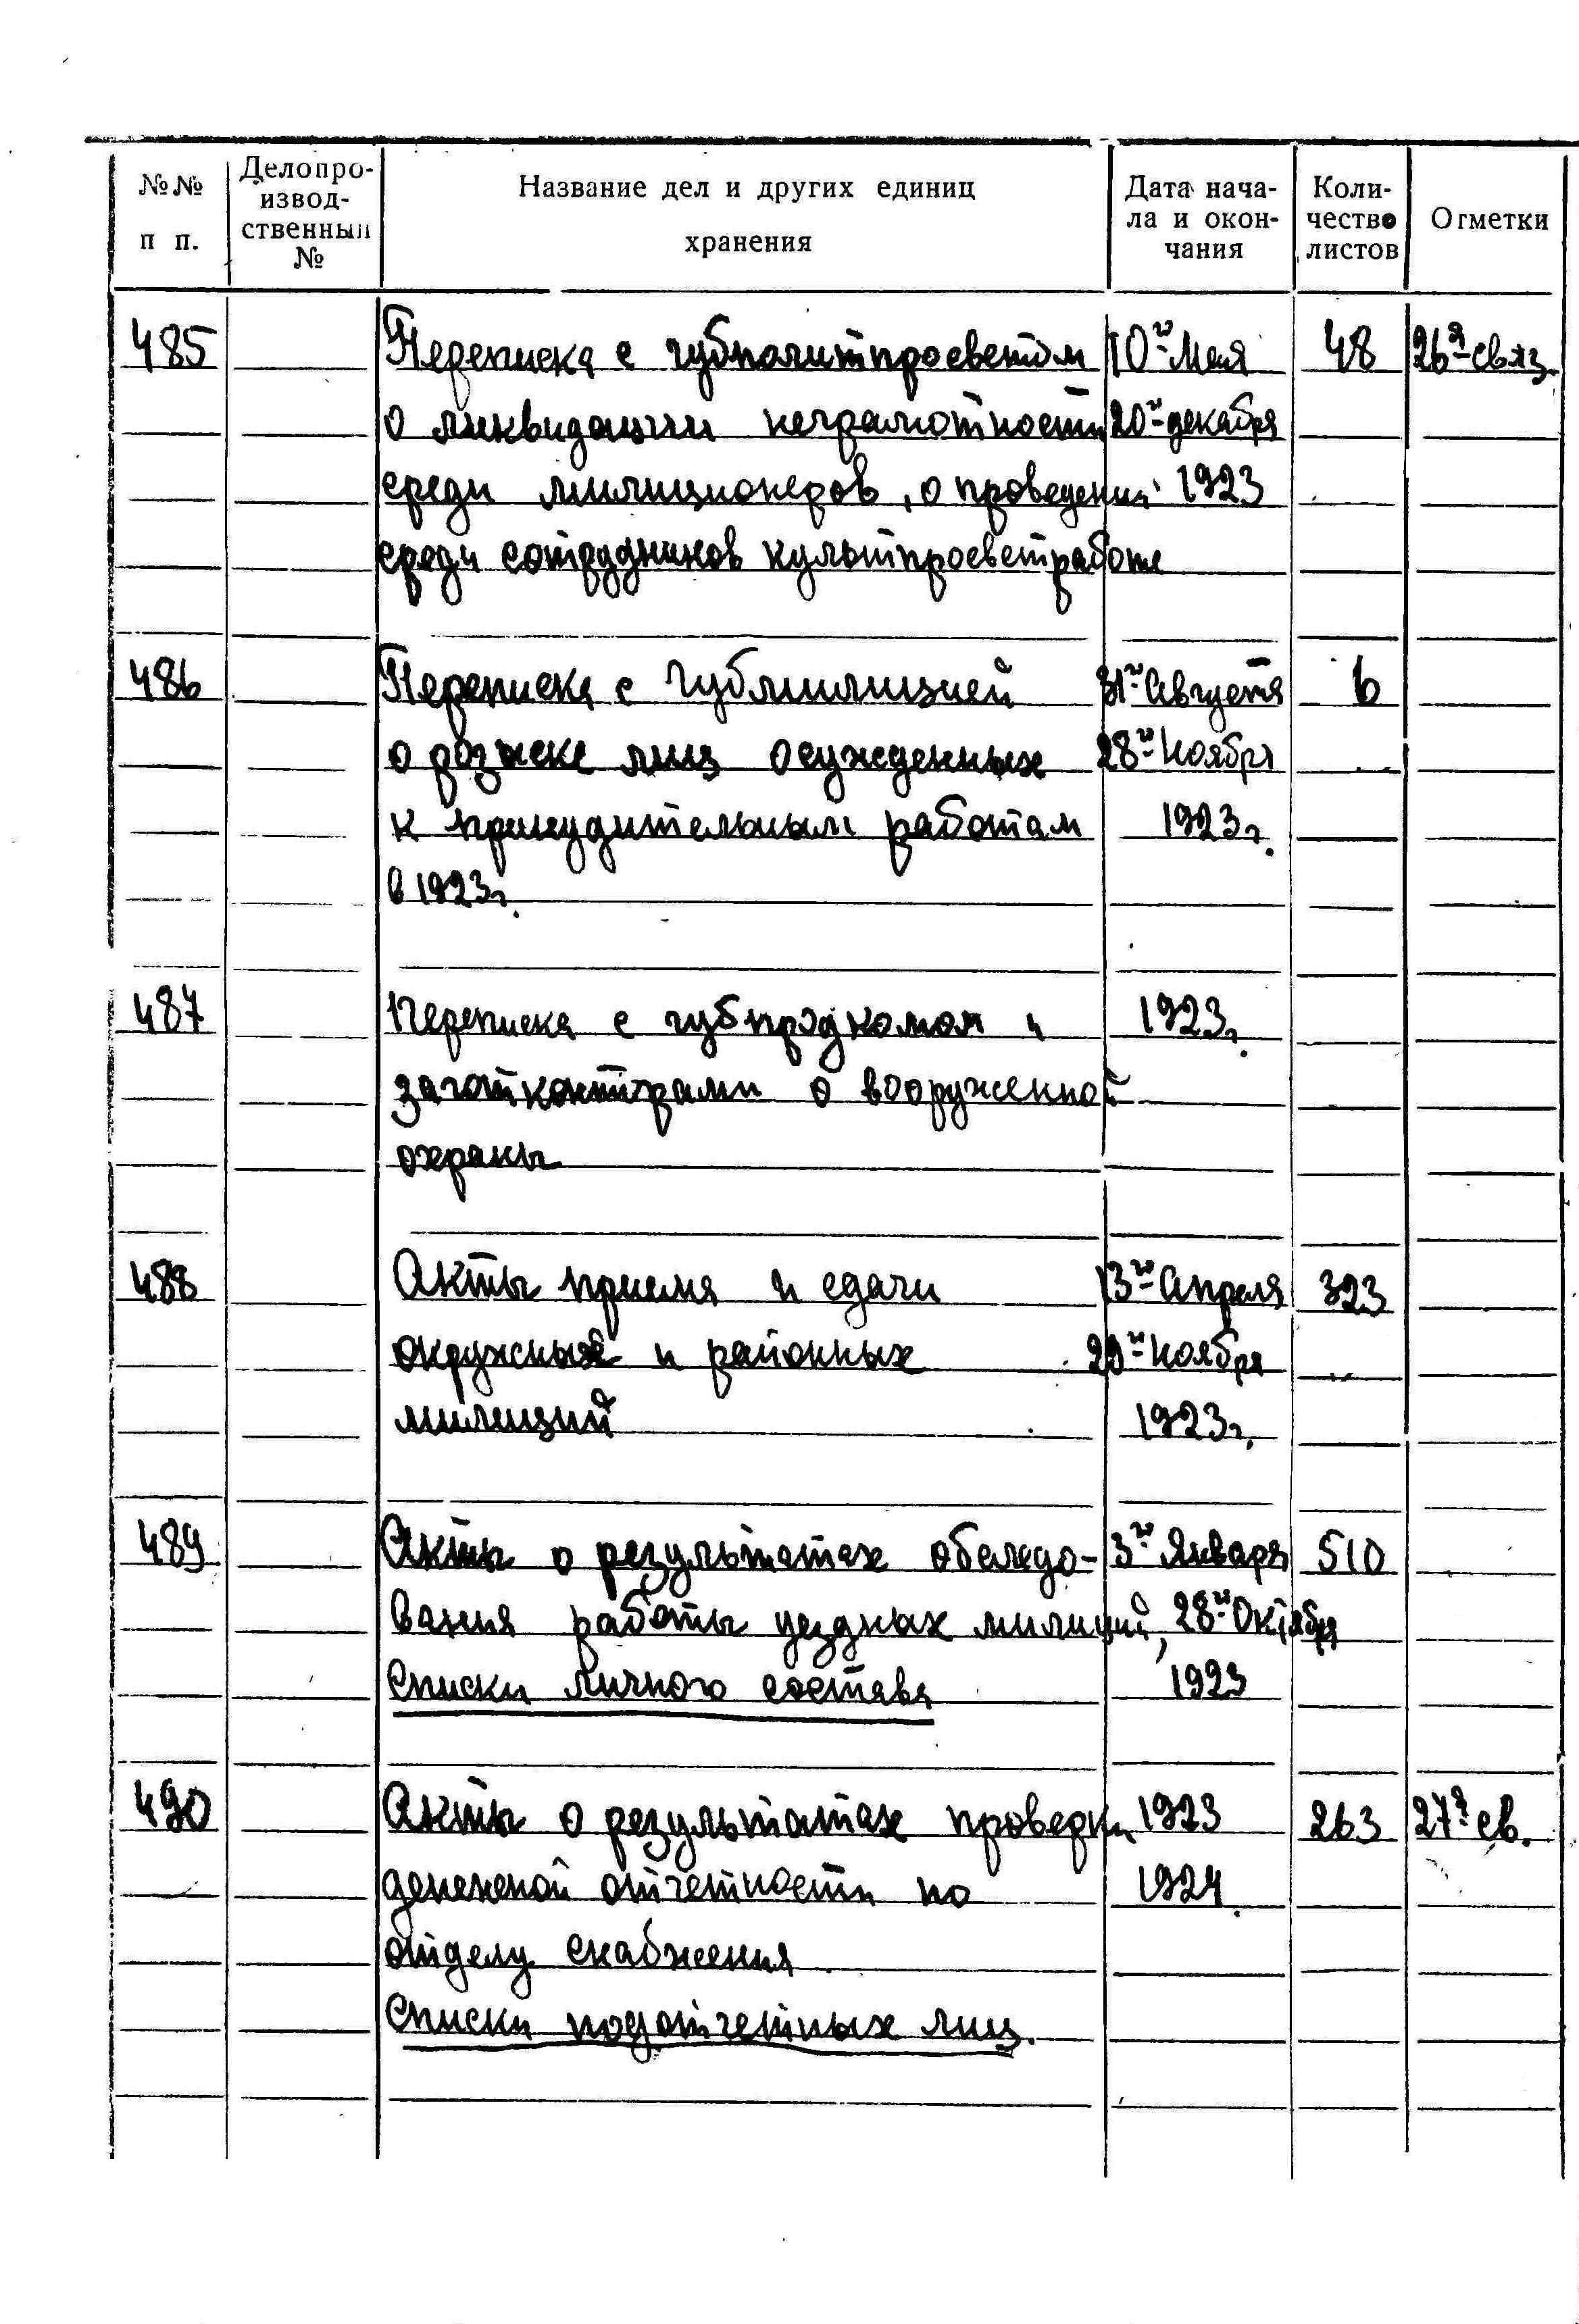 №№ п п.
Делопро-
извод-
ственный
№
Название дел и других единиц
хранения
Дата нача-
ла и окон-
чания
Коли-
чество
листов
Отметки
485 Переписка с губполитпросветом 10го Мая 48 26я связ.
о ликвидации неграмотности 20го декабря
среди милиционеров, о проведении 1923
среди сотрудников культпросветработы
486 Переписка с Губмилицией 31го Августа 6
о розыске лиц осужденных 28го Ноября
к принудительным работам 1923г.
в 1923г.
487 Переписка с губпродкомом и 1923г.
заготконторами о вооруженной
охраны
488 Акты приема и сдачи 13го Апреля 323
окружных и районных 29го Ноября
милиций 1923г.
489 Акты о результатах обследо- 3го Января 510
вания работы уездных милиций, 28го Октября
Списки личного состава 1923
490 Акты о результатах проверки 1923 263 27я св.
денежной отчетности по 1924.
отделу снабжения
Списки подотчетных лиц.